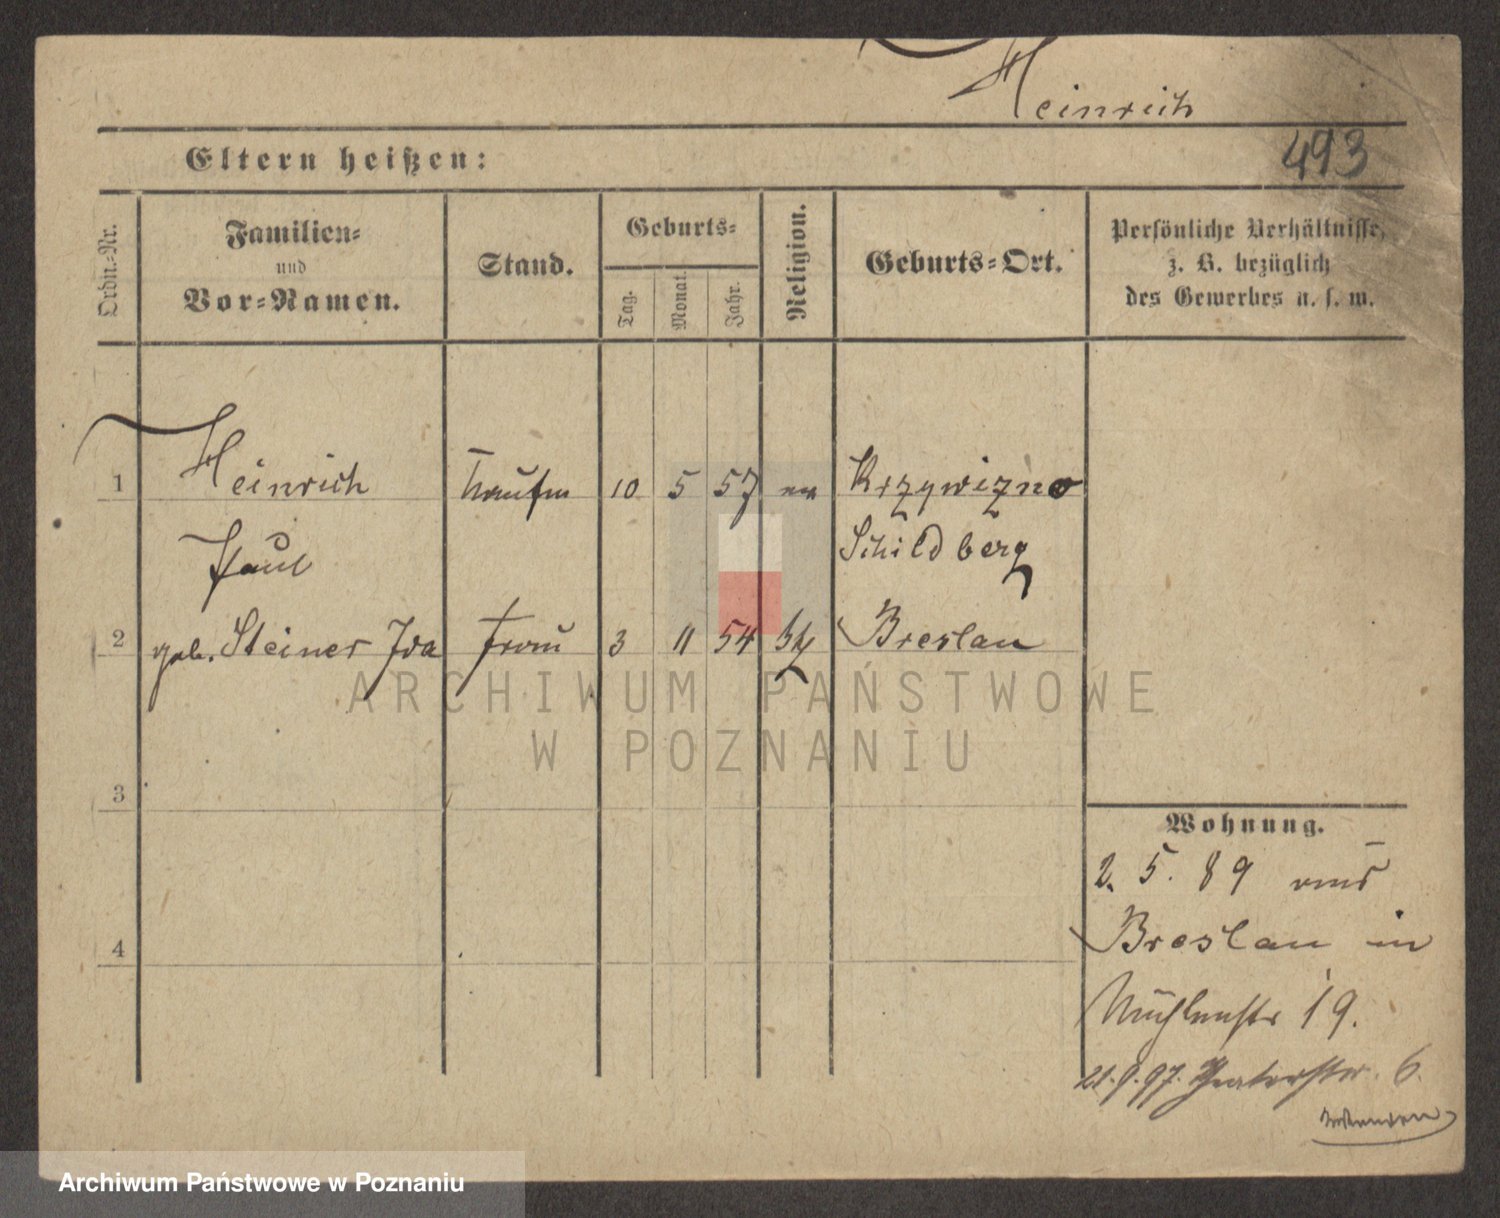 Heinrich
493
Eltern heißen:
Ordn.-Nr.
Familien-
und
Vor-Namen.
Stand.
Geburts-
Tag.
Monat.
Jahr.
Religion.
Geburts-Ort.
Persönliche Verhältnisse,
z. B. bezüglich
des Gewerbes u. s. w.
1 Heinrich Kaufm 10 5 57 ev Krzywizno
Paul Schildberg
2 geb. Steiner Ida Frau 3 11 54 Breslau
ARCHIWUM PAŃSTWOWE
W POZNANIU
3
4
Wohnung.
2. 5. 89 aus
Breslau in
Mühlenstr 19.
21.9.97. 6.
Archiwum Państwowe w Poznaniu